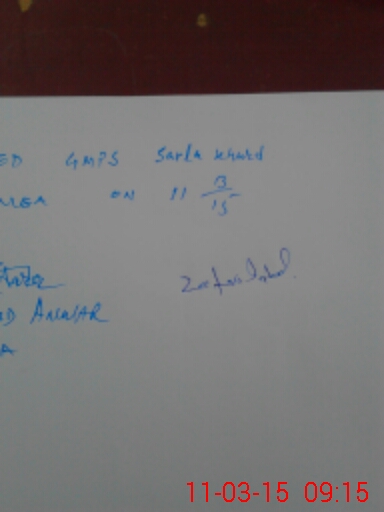 ED GMPS Sarla Khurd
ON 11 3/15
Zafar Iqbal
D ANWAR
A
11-03-15 09:15